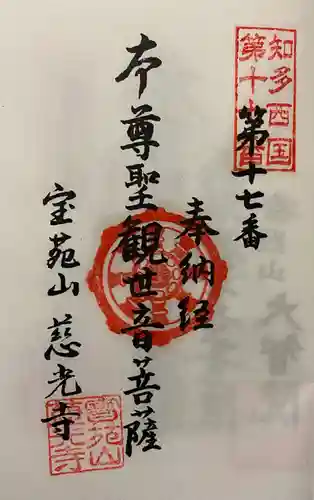 知多西国
第十七番
第十七番
奉納経
本尊聖観世音菩薩
宝苑山 慈光寺
寳苑山
慈光寺